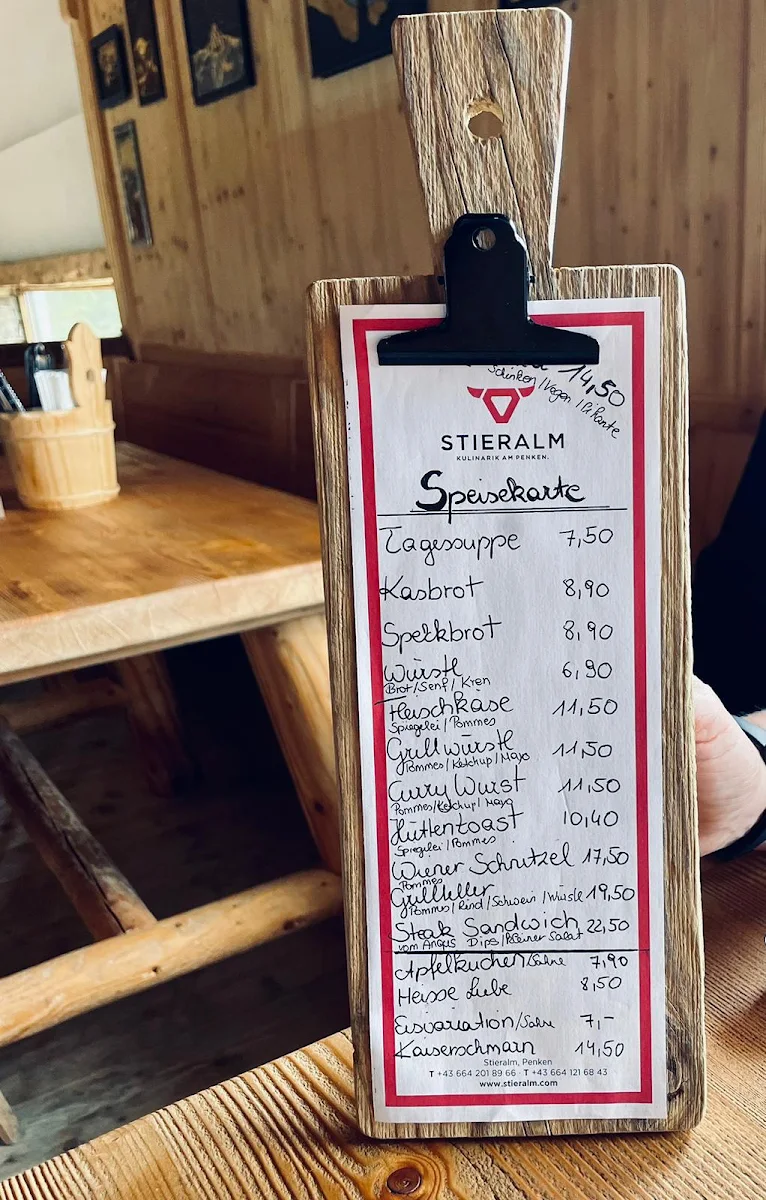 14,50
Schinken/Vegan/Pikante
STIERALM
KULINARIK AM PENKEN.
Speisekarte
Tagessuppe 7,50
Kasbrot 8,90
Speckbrot 8,90
Würstl 6,90
Brot/Senf/Kren
Fleischkäse 11,50
Spiegelei/Pommes
Grillwürstl 11,50
Pommes/Ketchup/Mayo
Curry Wurst 11,50
Pommes/Ketchup/Mayo
Hüttentoast 10,40
Spiegelei/Pommes
Wiener Schnitzel 17,50
Pommes
Grillteller 19,50
Pommes/Rind/Schwein/Würstl
Steak Sandwich 22,50
vom Angus Dips/Kleiner Salat
Apfelkuchen/Sahne 7,90
Heisse Liebe 8,50
Eisvariation/Sahne 7,-
Kaiserschmarn 14,50
Stieralm, Penken
T +43 664 201 89 66 · T +43 664 121 68 43
www.stieralm.com